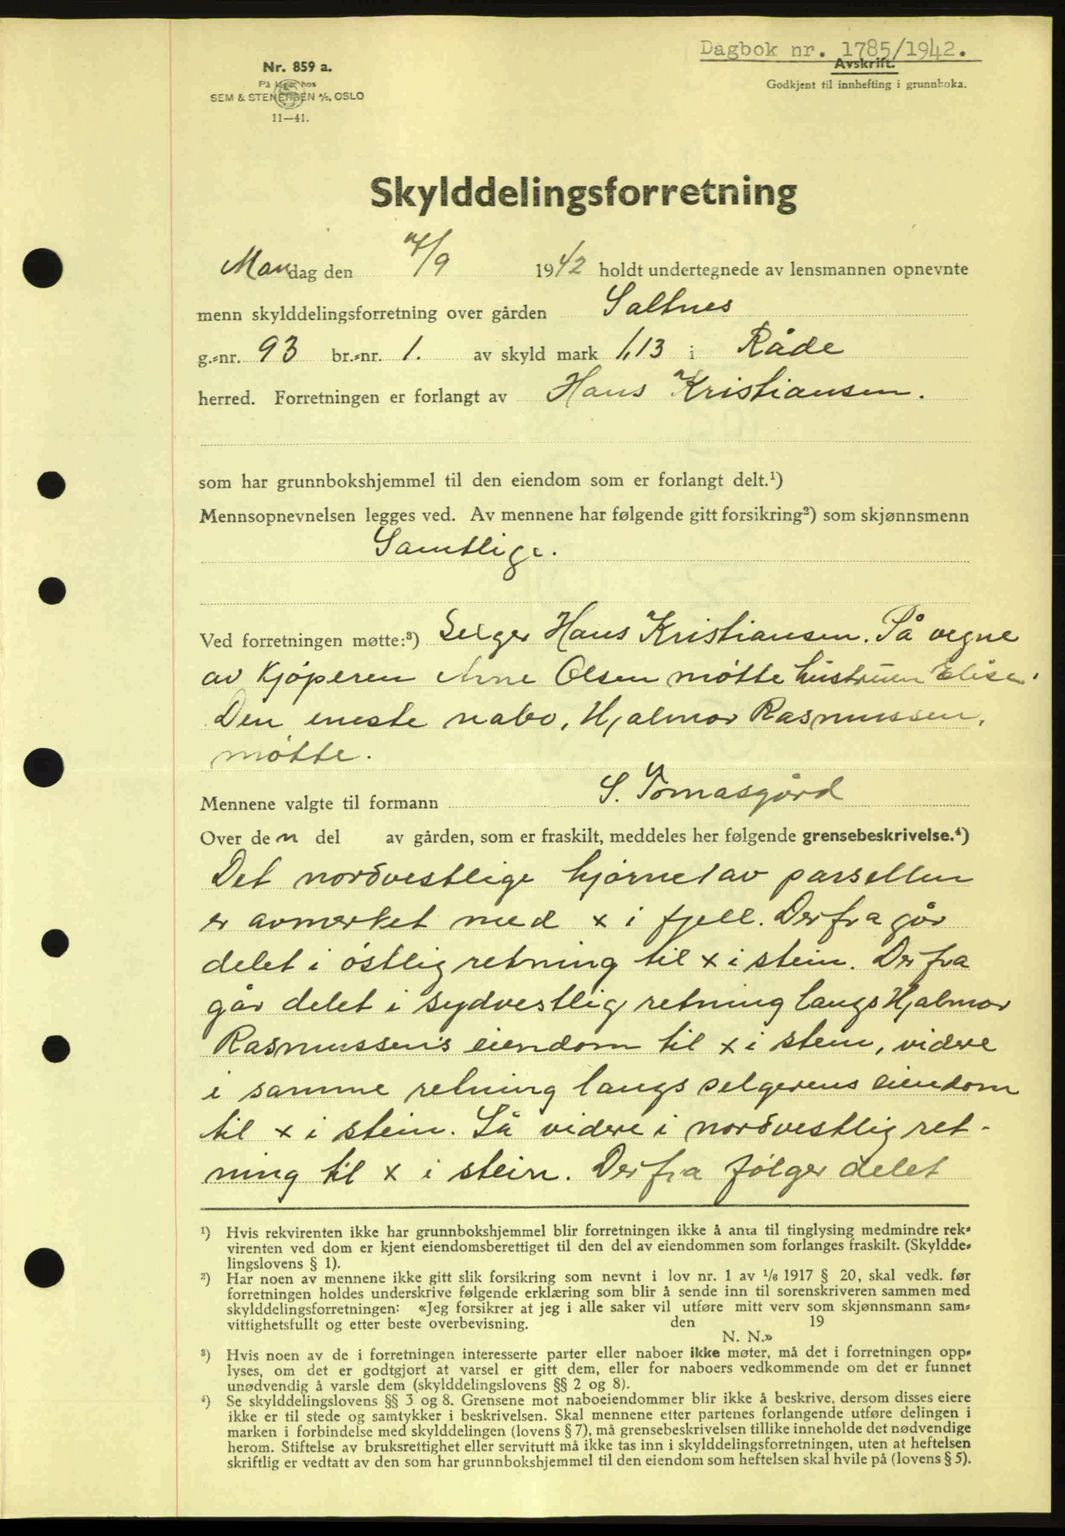 Dagbok nr. 1785/1942.
Avskrift.
Godkjent til innhefting i grunnboka.
Nr. 859 a.
På lager hos
SEM & STENERSEN A/S, OSLO
11—41.
Skylddelingsforretning
Mandag den 7/9 1942 holdt undertegnede av lensmannen opnevnte
menn skylddelingsforretning over gården Saltnes
g.-nr. 93 br.-nr. 1. av skyld mark 1,13 i Råde
herred. Forretningen er forlangt av Hans Kristiansen.
som har grunnbokshjemmel til den eiendom som er forlangt delt.¹)
Mennsopnevnelsen legges ved. Av mennene har følgende gitt forsikring²) som skjønnsmenn
Samtlige.
Ved forretningen møtte:³) Selger Hans Kristiansen. På vegne
av kjøperen Arne Olsen møtte hustruen Elise.
Den eneste nabo, Hjalmar Rasmussen,
møtte.
Mennene valgte til formann S. Tomasgård
Over den del av gården, som er fraskilt, meddeles her følgende grensebeskrivelse.⁴)
Det nordvestlige hjørnet av parsellen
er avmerket med x i fjell. Derfra går
delet i østlig retning til x i stein. Derfra
går delet i sydvestlig retning langs Hjalmar
Rasmussens eiendom til x i stein, videre
i samme retning langs selgerens eiendom
til x i stein. Så videre i nordvestlig ret-
ning til x i stein. Derfra følger delet
¹) Hvis rekvirenten ikke har grunnbokshjemmel blir forretningen ikke å anta til tinglysing medmindre rek-
virenten ved dom er kjent eiendomsberettiget til den del av eiendommen som forlanges fraskilt. (Skyldde-
lingslovens § 1).
²) Har noen av mennene ikke gitt slik forsikring som nevnt i lov nr. 1 av 1/6 1917 § 20, skal vedk. før
forretningen holdes underskrive følgende erklæring som blir å sende inn til sorenskriveren sammen med
skylddelingsforretningen: «Jeg forsikrer at jeg i alle saker vil utføre mitt verv som skjønnsmann sam-
vittighetsfullt og etter beste overbevisning. den 19
N. N.»
³) Hvis noen av de i forretningen interesserte parter eller naboer ikke møter, må det i forretningen opp-
lyses, om det er godtgjort at varsel er gitt dem, eller for naboers vedkommende om det er funnet
unødvendig å varsle dem (skylddelingslovens §§ 2 og 8).
⁴) Se skylddelingslovens §§ 3 og 8. Grensene mot naboeiendommer blir ikke å beskrive, dersom disses eiere
ikke er til stede og samtykker i beskrivelsen. Skal mennene etter partenes forlangende utføre delingen i
marken i forbindelse med skylddelingen (lovens § 7), må grensebeskrivelsen tillike inneholde det nødvendige
herom. Stiftelse av bruksrettighet eller servitutt må ikke tas inn i skylddelingsforretningen, uten at heftelsen
skriftlig er vedtatt av den som har grunnbokshjemmel til den eiendom som heftelsen skal hvile på (lovens § 5).